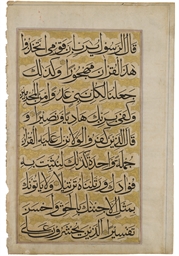 قال الرسول يرب ان قومي اتخذوا
هذا القران مهجورا وكذلك
جعلنا لكل نبي عدوا من المجرمين
وكفى بربك هاديا ونصيرا و
قال الذين كفروا لولا نزل عليه القران
جملة واحدة كذلك لنثبت به
فؤادك ورتلناه ترتيلا ولا ياتونك
بمثل الا جئناك بالحق واحسن
تفسيرا الذين يحشرون على